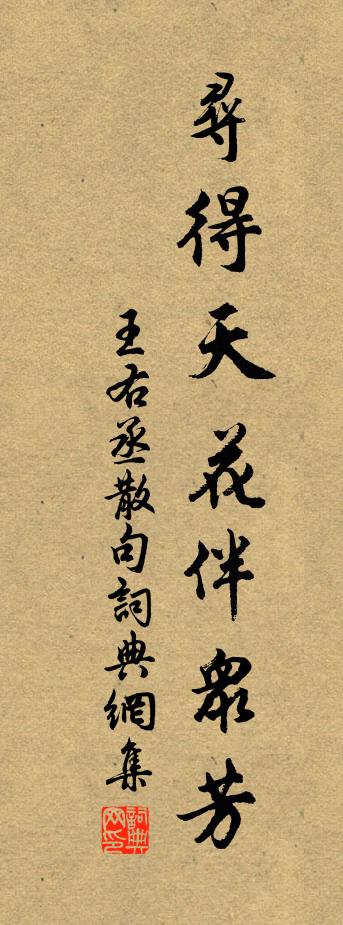 尋得天花伴眾芳
王右丞散句詞典網集
詞典网印